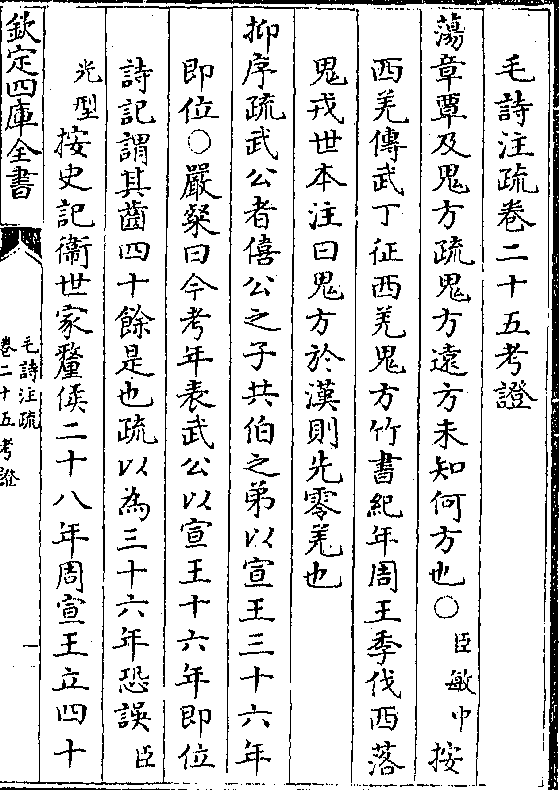 毛詩注疏卷二十五考證
蕩章覃及鬼方疏鬼方遠方未知何方也○臣敏中按
西羌傳武丁征西羌鬼方竹書紀年周王季伐西落
鬼戎世本注曰鬼方於漢則先零羌也
抑序疏武公者僖公之子共伯之弟以宣王三十六年
即位○嚴粲曰今考年表武公以宣王十六年即位
詩記謂其齒四十餘是也疏以為三十六年恐誤臣
光型按史記衞世家釐侯二十八年周宣王立四十
欽定四庫全書
毛詩注疏
卷二十五考證
一